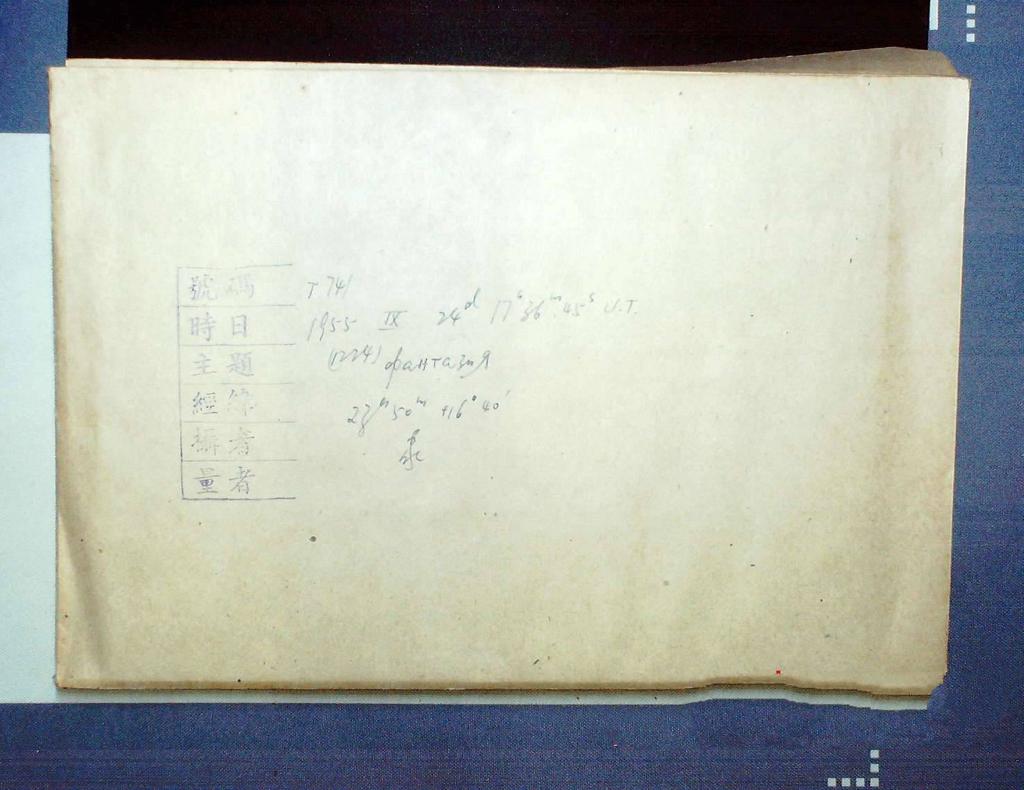 號碼 T 741
時日 1955 IX 24ᵈ 17ʰ36ᵐ45ˢ U.T.
主題 (1224) фантазия
經緯 23ʰ50ᵐ +16°40′
攝者
量者